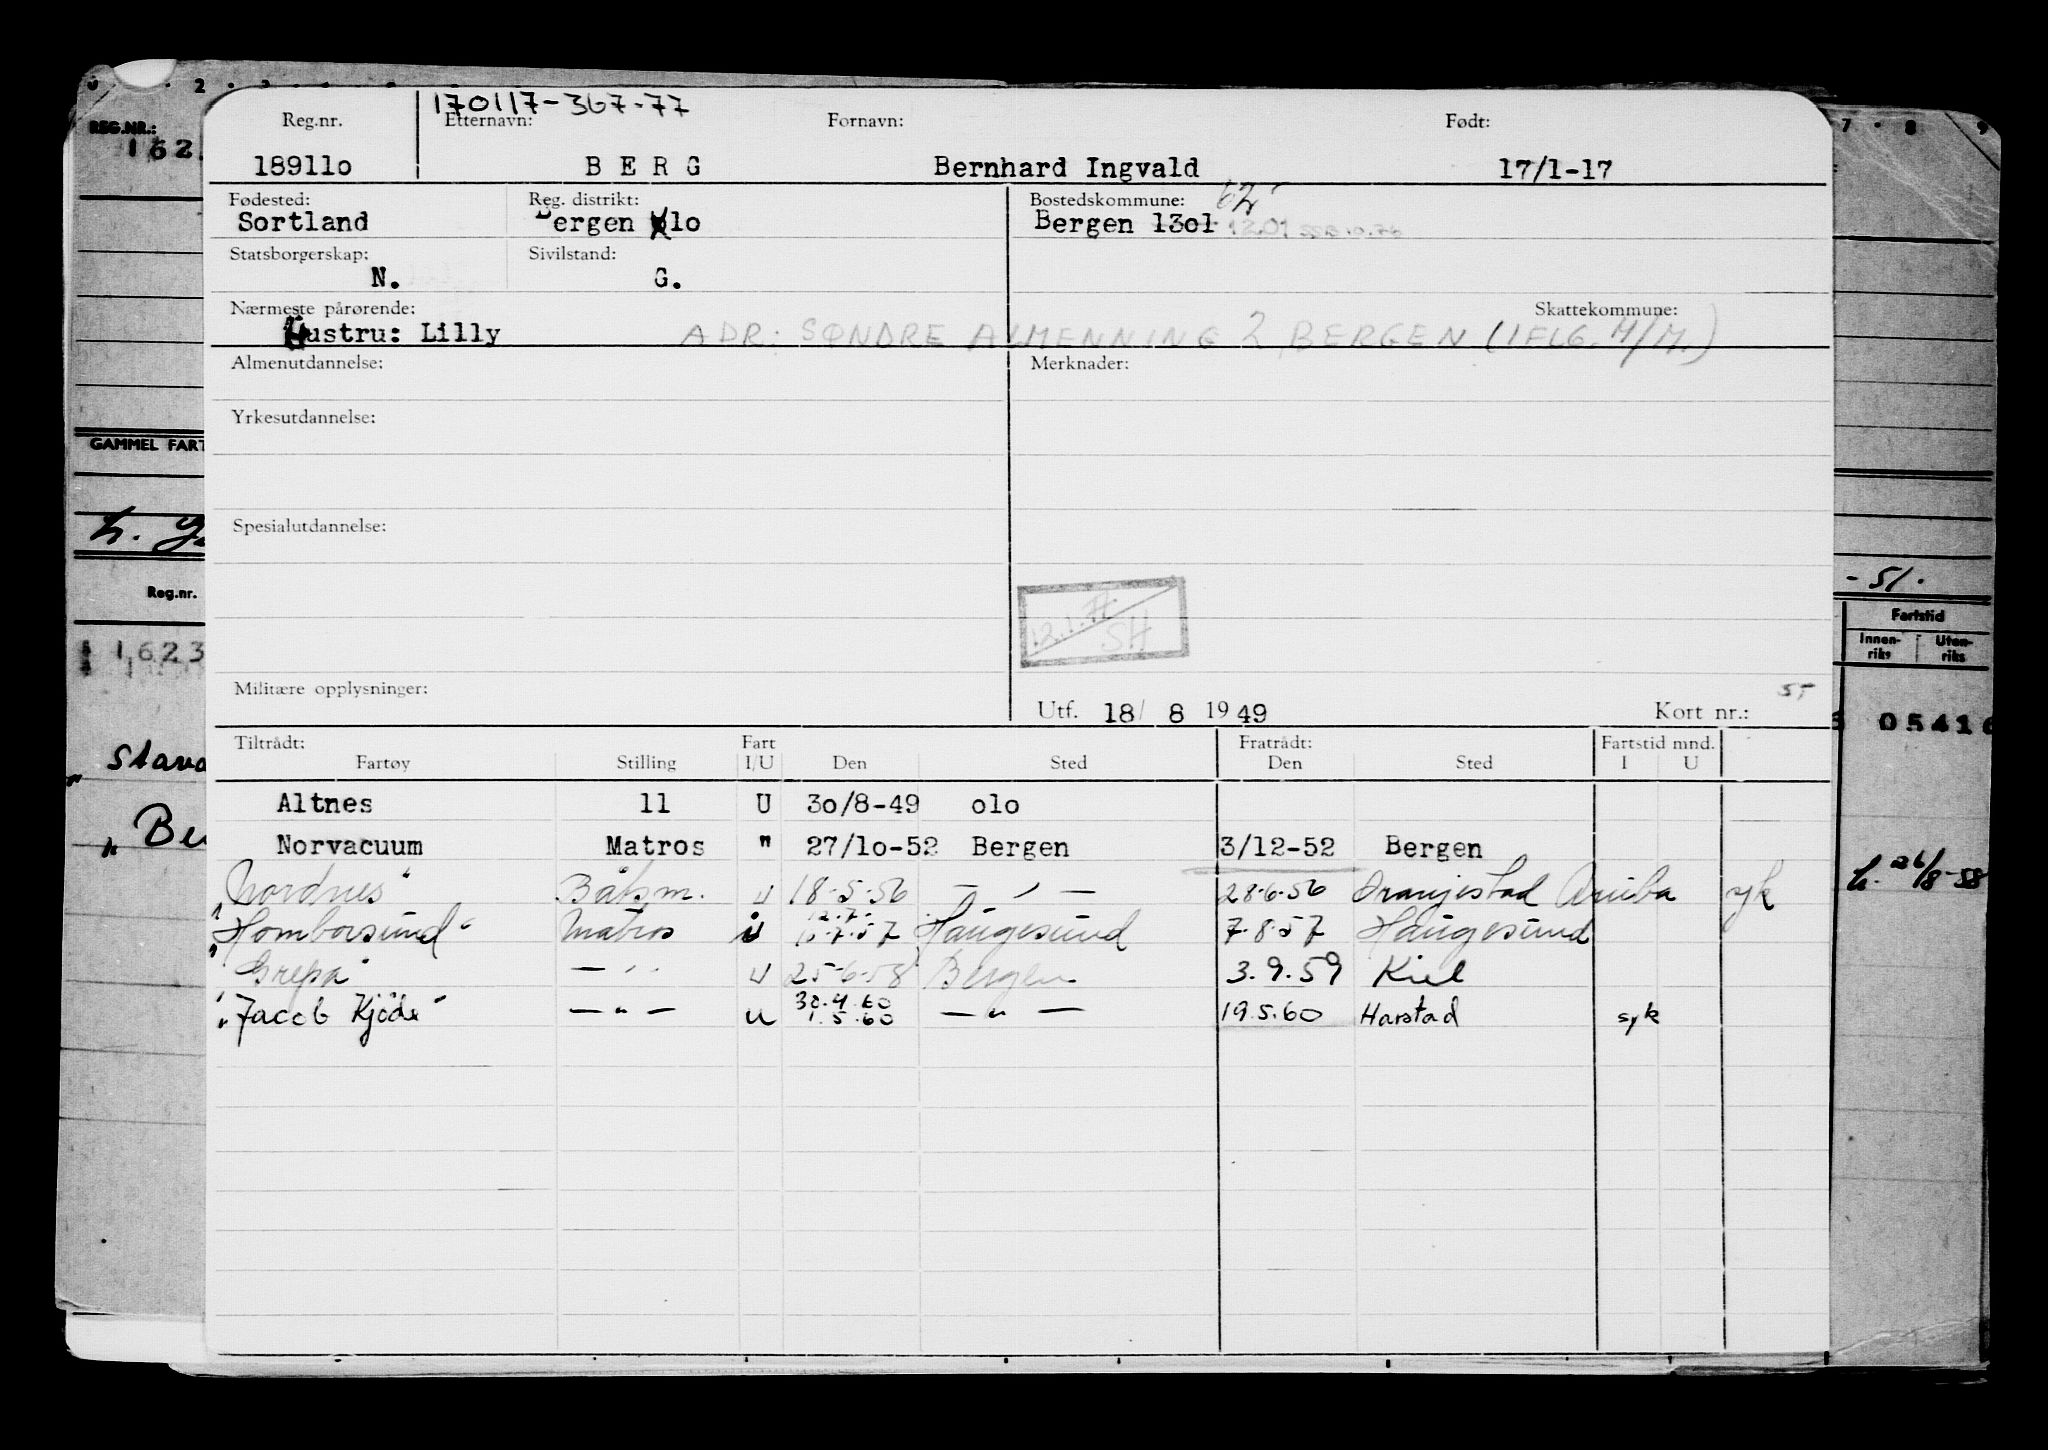 170117-367-77
Reg.nr. Etternavn: Fornavn: Født:
18911o B E R G Bernhard Ingvald 17/1-17
Fødested: Reg. distrikt: Bostedskommune: 62
Sortland Bergen olo Bergen 13o1 1201
Statsborgerskap: Sivilstand:
N. G.
Nærmeste pårørende: Skattekommune:
Hustru: Lilly ADR: SØNDRE ALMENNING 2, BERGEN (IFLG. M/M.)
Almenutdannelse: Merknader:
Yrkesutdannelse:
Spesialutdannelse:
12.1.77
SH
Militære opplysninger:
Utf. 18/ 8 1949 Kort nr.:
Tiltrådt: Fart Fratrådt: Fartstid mnd.
Fartøy Stilling I/U Den Sted Den Sted I U
Altnes 11 U 3o/8-49 olo
Norvacuum Matros " 27/1o-52 Bergen 3/12-52 Bergen
"Nordnes" Båtsm. u 18-5-56 — " — 28-6-56 Oranjestad Aruba syk
"Homborsund" Matros 12.7. Haugesund 7.8.57 Haugesund
"Grepa" — " u 25-6-58 Bergen 3.9.59 Kiel
"Jacob Kjöde" — " — u 30.4.60 1.5.60 — " — 19.5.60 Harstad syk
REG.NR.:
162
GAMMEL FART
Reg.nr.
1623
Stava
-51.
Fartstid
Innen-riks Uten-riks
05416
26/8-58